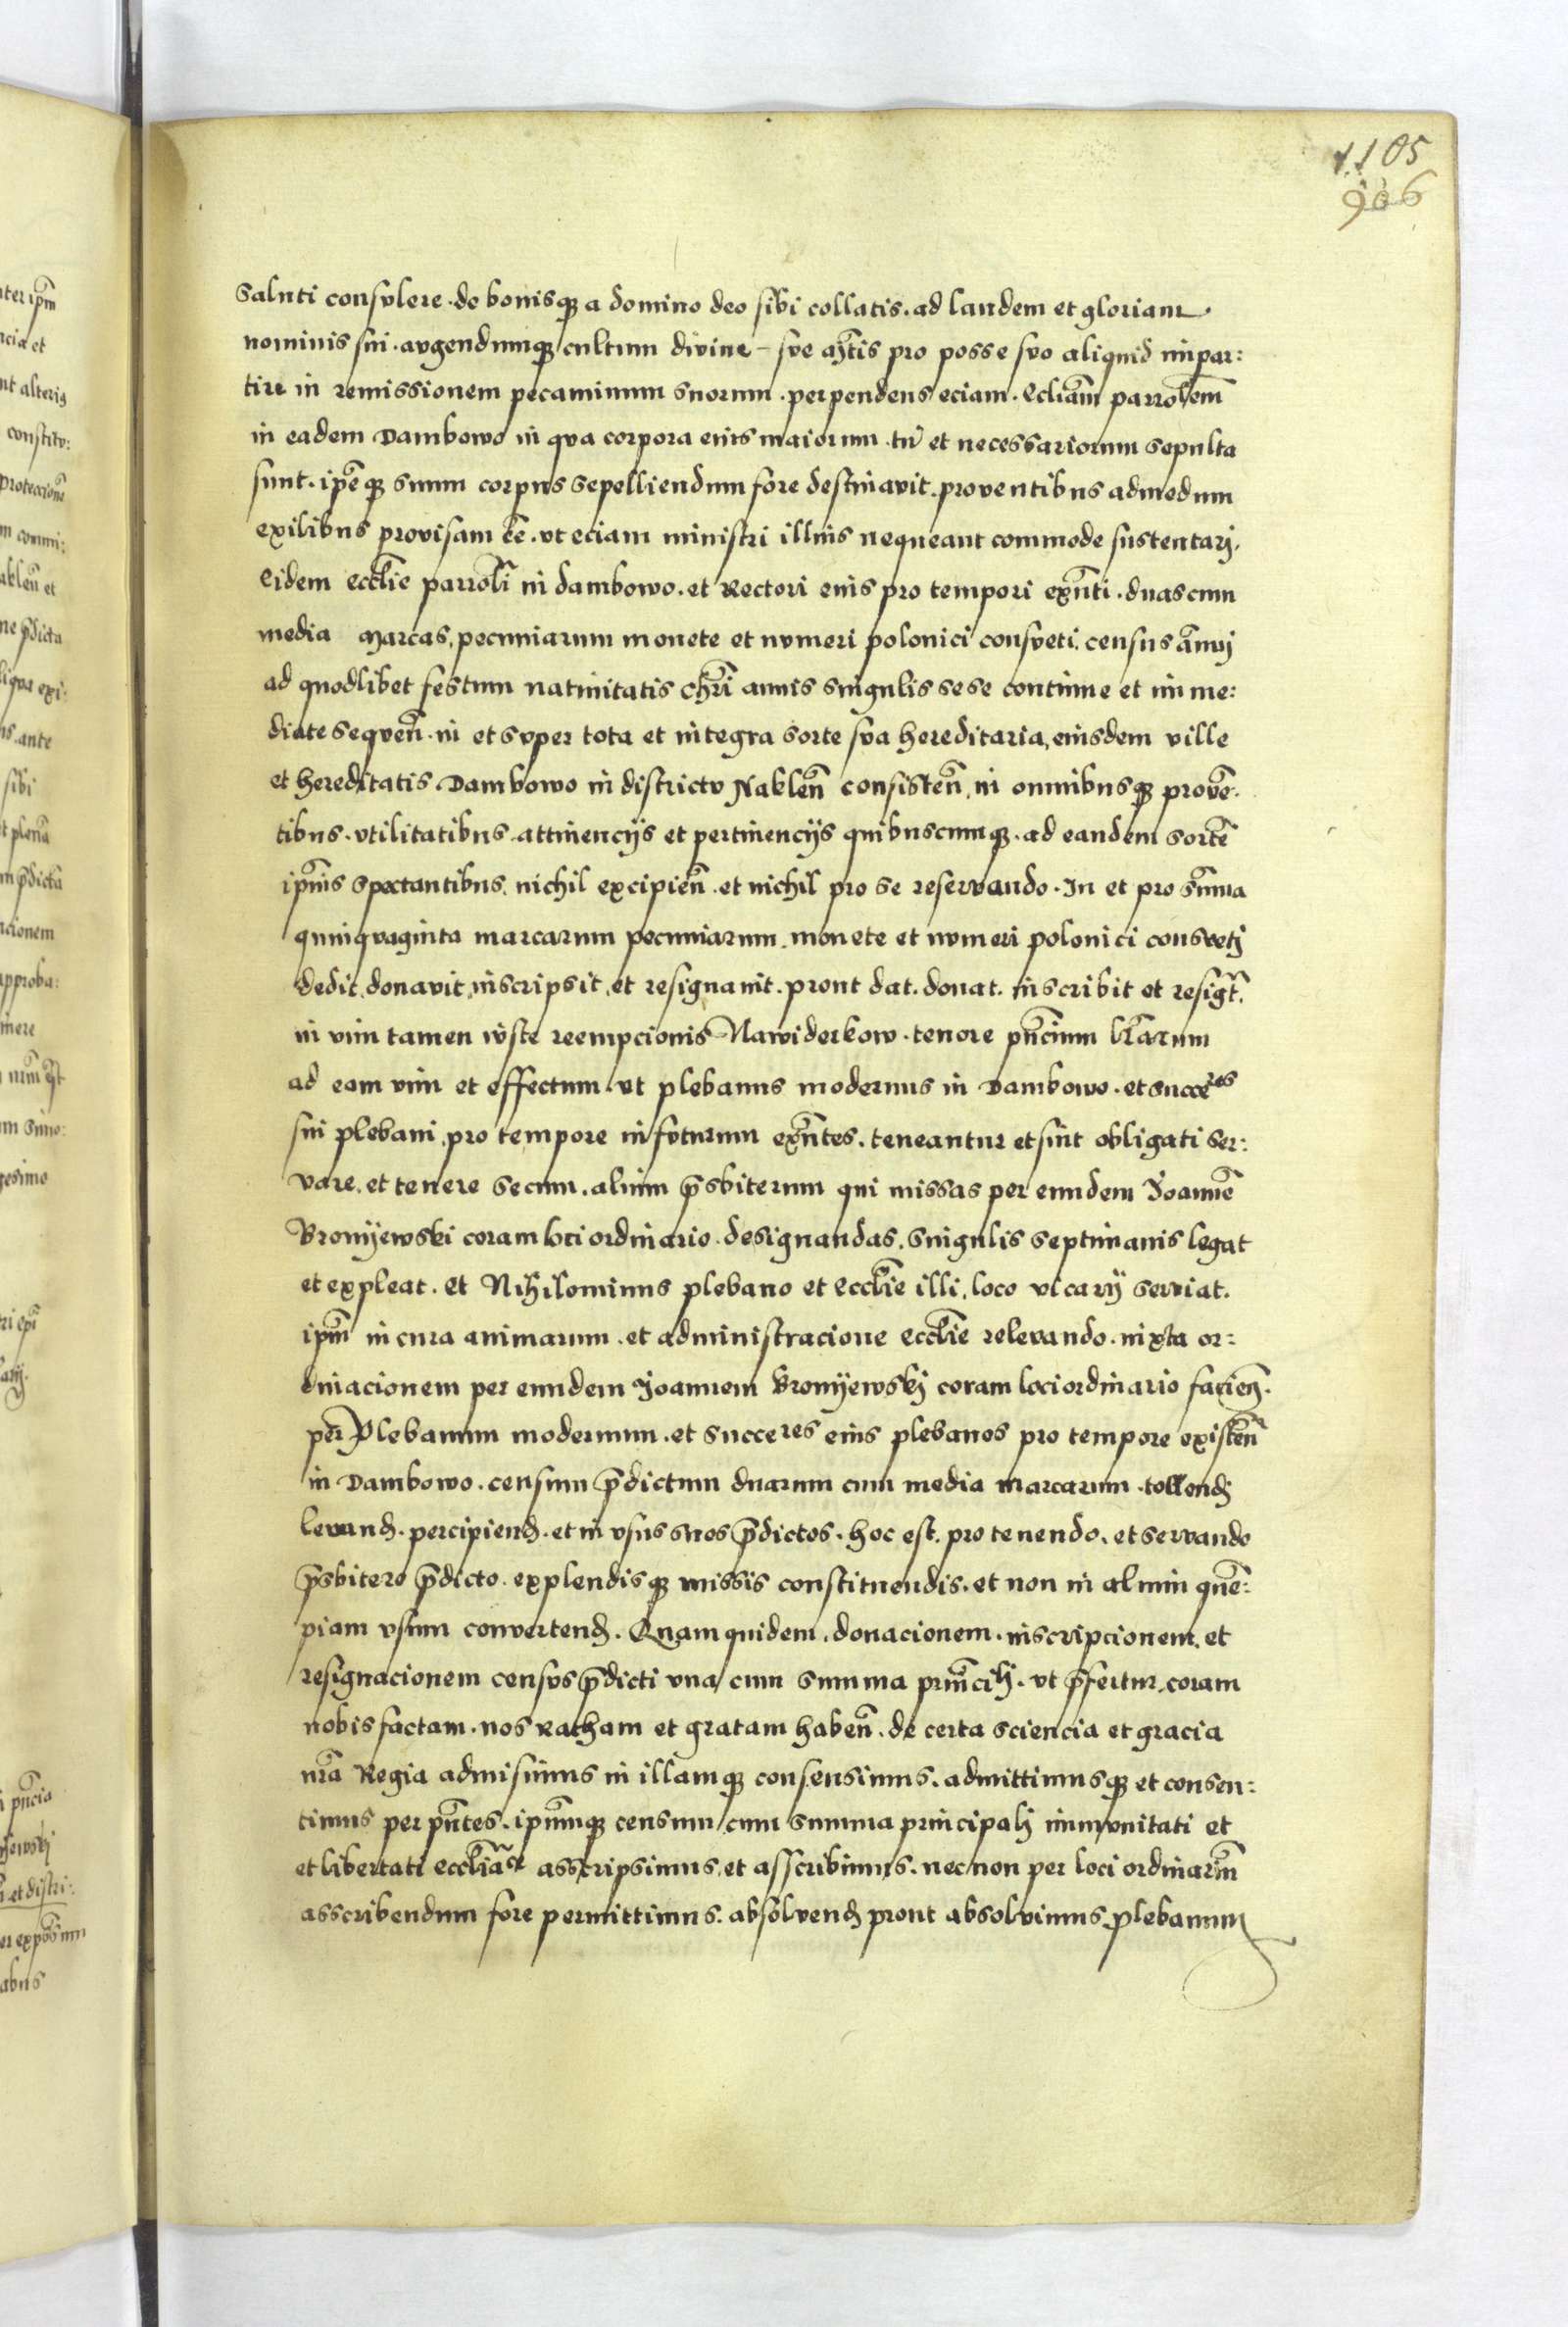 1105
906
saluti consulere . de bonisq; a domino deo sibi collatis . ad laudem et gloriam
nominis sui . augendumq; cultum divine sue aȳtis pro posse suo aliquid impar:
tire in remissionem pecaminum suorum . perpendens eciam . eccliam̄ parrolem̄
in eadem Dambowo in qua corpora eius maiorum . tū et necessariorum sepulta
sunt . ip̄eq; suum corpus sepelliendum fore destinavit . proventibus admodum
exilibus provisam ēē . ut eciam ministri illius nequeant commode sustentarj .
Eidem eccl̄ie parrol̄i in dambowo . et Rectori eius pro tempori exn̄ti . duas cum
media marcas, pecuniarum monete et numeri polonici consueti . census an̄uj
ad quodlibet festum nativitatis Chr̄i annis singulis sese continue et imme:
diate sequen̄ . in et super tota et integra sorte sua hereditaria, eiusdem ville
et hereditatis Dambowo in districtu Naklen̄ consisten̄ . in omnibusq; proven̄:
tibus . utilitatibus . attinencijs et pertinencijs quibuscumq; . ad eandem sortē
ip̄ius spectantibus . nichil excipien̄ . et nichil pro se reservando . In et pro sum̄a
quinquaginta marcarum pecuniarum . monete et numeri polonici consuetj
dedit . donavit . inscripsit . et resignavit . prout dat . donat . inscribit et resigt̄ .
in vim tamen iuste reempcionis Nawiderkow . tenore pn̄cium l̄rarum
ad eam vim et effectum . ut plebanus modernus in Dambowo . et succeres
sui plebani pro tempore in futurum exn̄tes . teneantur et sint obligati ser:
vare . et tenere secum . alium p̄sbiterum qui missas per eundem Joannē
Bronijewski coram loci ordinario . designandas . singulis septimanis legat
et expleat . et Nihilominus plebano et eccl̄ie illi . loco vicarij serviat .
ip̄m in cura animarum . et administracione eccl̄ie relevando . iuxta or:
dinacionem per eundem Joannem Bronijewskj coram loci ordinario facien̄ .
per Plebanum modernum . et succeres eius plebanos pro tempore existen̄
in Dambowo . censum p̄dictum duarum cum media marcarum . tollend̄
levand̄ . percipiend̄ . et in usus suos p̄dictos . hoc est . pro tenendo . et servando
p̄sbitero p̄dicto . explendisq; missis constituendis . et non in alium quē:
piam usum convertend̄ . Quam quidem . donacionem . inscripcionem . et
resignacionem census p̄dicti una cum summa prin̄clj . ut p̄fertur . coram
nobis factam . nos ratham et gratam haben̄ . de certa sciencia et gracia
nr̄a Regia admisimus in illamq; consensimus . admittimusq; et consen:
timus per pn̄tes . ip̄umq; censum cum summa principalj immunitati et
et libertati eccl̄iace asscripsimus . et asscribimus . necnon per loci ordinariū
asscribendum fore permittimus . absolvend̄ prout absolvimus plebanum